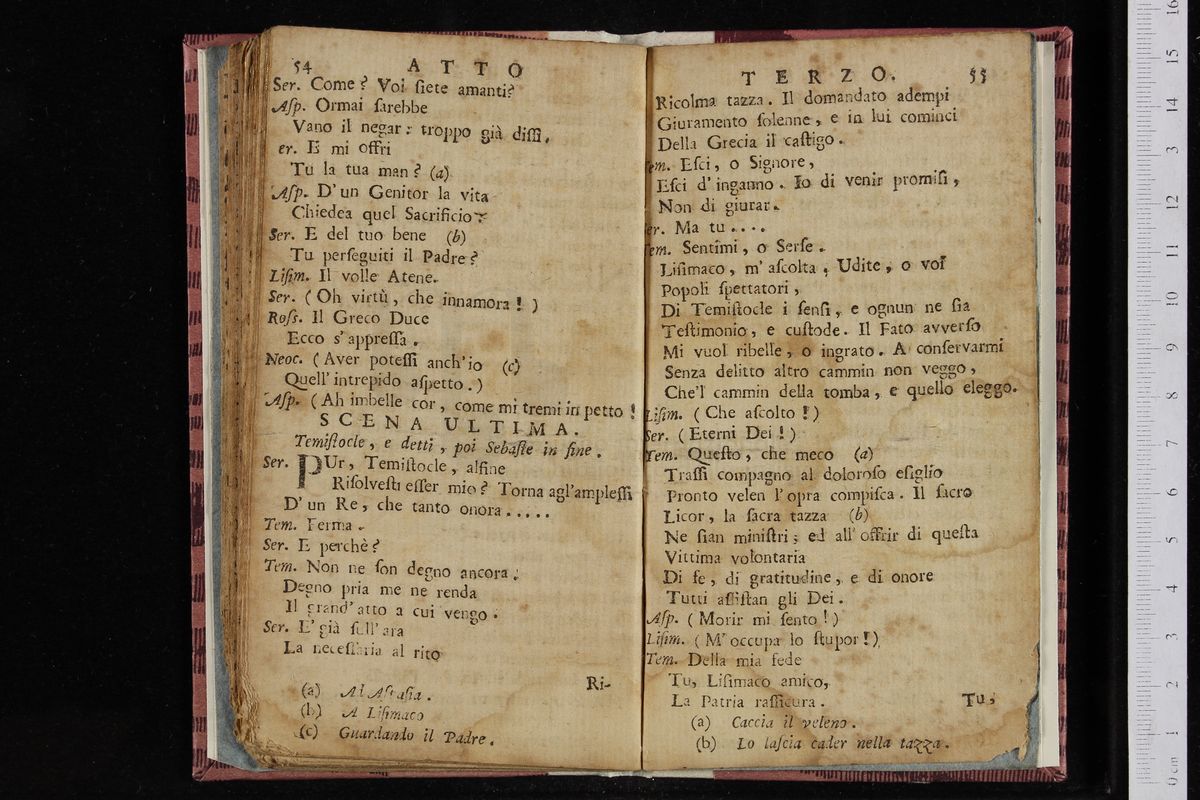 54 ATTO
Ser. Come? Voi ſiete amanti?
Aſp. Ormai ſarebbe
Vano il negar: troppo già diſſi.
er. E mi offri
Tu la tua man? (a)
Aſp. D'un Genitor la vita
Chiedea quel Sacrificio.
Ser. E del tuo bene (b)
Tu perſeguiti il Padre?
Liſim. Il volle Atene.
Ser. (Oh virtù, che innamora!)
Roſs. Il Greco Duce
Ecco s'appreſſa.
Neoc. (Aver poteſſi anch'io (c)
Quell'intrepido aſpetto.)
Aſp. (Ah imbelle cor, come mi tremi in petto!
SCENA ULTIMA.
Temiſtocle, e detti, poi Sebaſte in fine.
Ser. PUr, Temiſtocle, alfine
Riſolveſti eſſer mio? Torna agl'ampleſſi
D'un Re, che tanto onora.....
Tem. Ferma.
Ser. E perchè?
Tem. Non ne ſon degno ancora.
Degno pria me ne renda
Il grand'atto a cui vengo.
Ser. E' già ſull'ara
La neceſſaria al rito
Ri-
(a) Ad Aſpaſia.
(b) A Liſimaco
(c) Guardando il Padre.
TERZO. 55
Ricolma tazza. Il domandato adempi
Giuramento ſolenne, e in lui cominci
Della Grecia il caſtigo.
em. Eſci, o Signore,
Eſci d'inganno. Io di venir promiſi,
Non di giurar.
er. Ma tu....
em. Sentimi, o Serſe.
Liſimaco, m'aſcolta, Udite, o voi
Popoli ſpettatori,
Di Temiſtocle i ſenſi, e ognun ne ſia
Teſtimonio, e cuſtode. Il Fato avverſo
Mi vuol ribelle, o ingrato. A conſervarmi
Senza delitto altro cammin non veggo,
Che'l cammin della tomba, e quello eleggo.
Liſim. (Che aſcolto!)
Ser. (Eterni Dei!)
Tem. Queſto, che meco (a)
Traſſi compagno al doloroſo eſiglio
Pronto velen l'opra compiſca. Il ſacro
Licor, la ſacra tazza (b)
Ne ſian miniſtri; ed all'offrir di queſta
Vittima volontaria
Di fe, di gratitudine, e di onore
Tutti aſſiſtan gli Dei.
Aſp. (Morir mi ſento!)
Liſim. (M'occupa lo ſtupor!)
Tem. Della mia fede
Tu, Liſimaco amico,
La Patria raſſicura.
Tu,
(a) Caccia il veleno.
(b) Lo laſcia cader nella tazza.
0cm 1 2 3 4 5 6 7 8 9 10 11 12 13 14 15 16